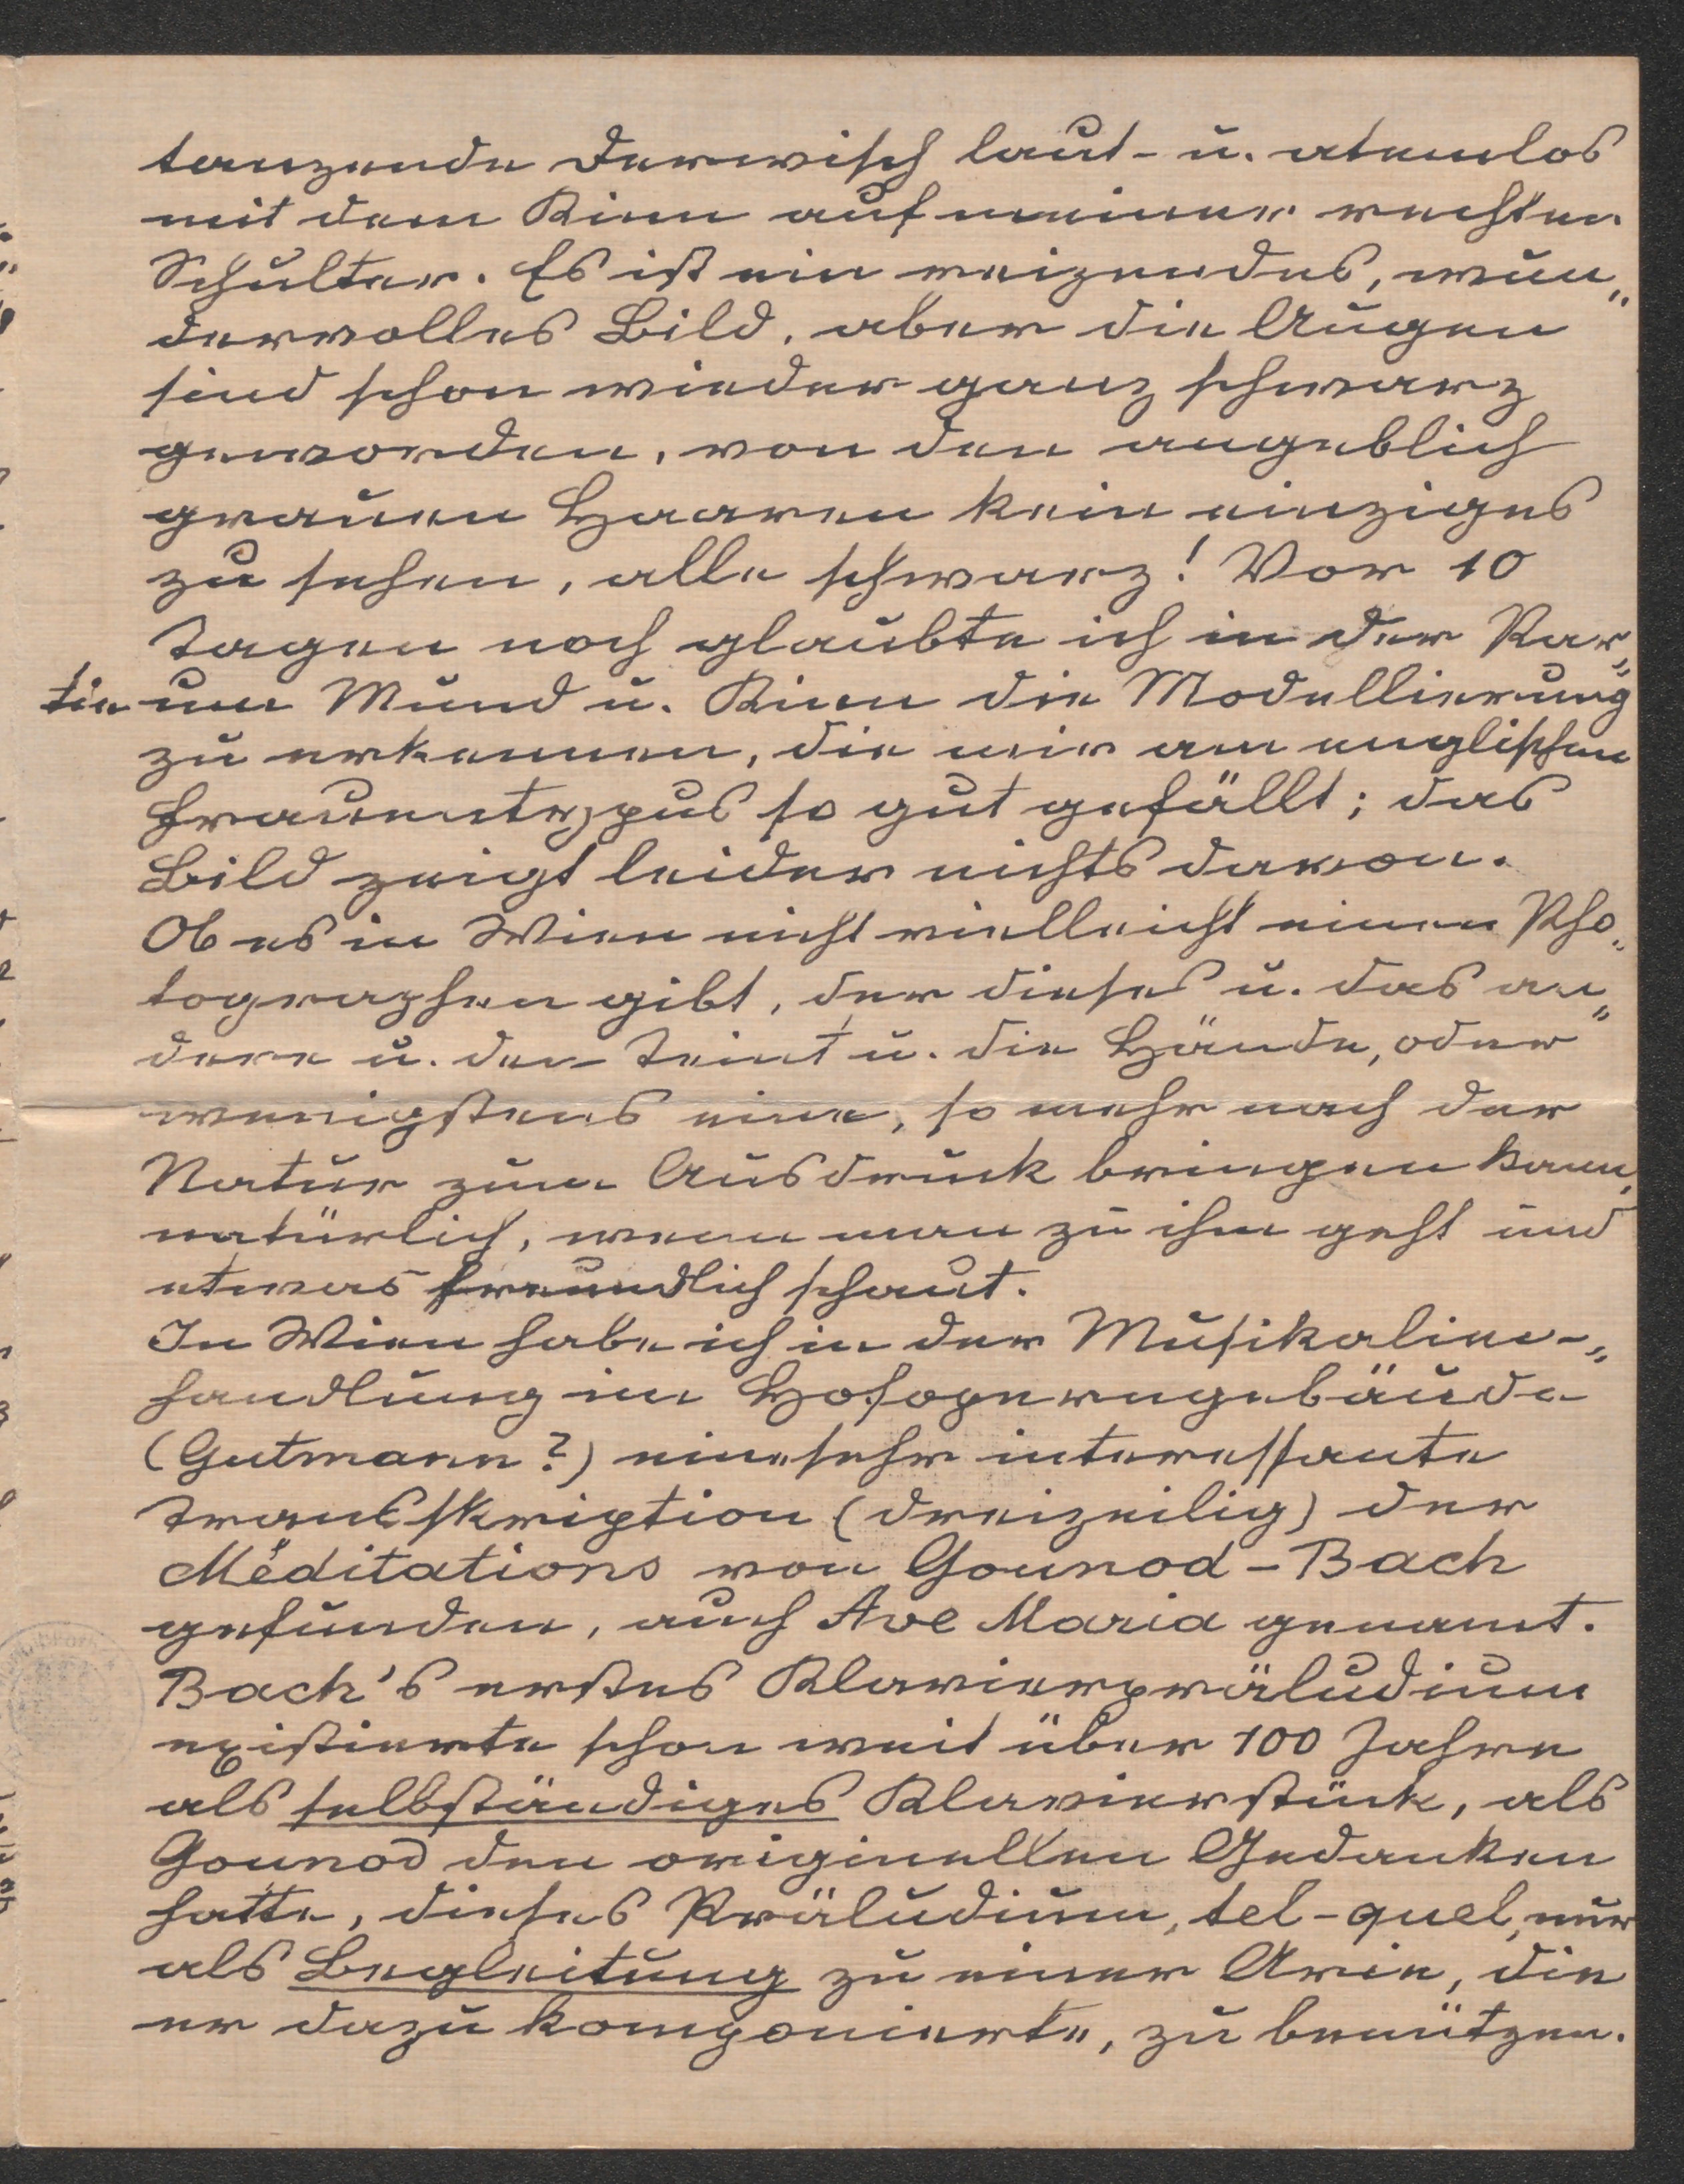 tanzende Derwisch laut- u. atemlos
mit dem Kinn auf meiner rechten
Schulter. Es ist ein reizendes, wun„
dervolles Bild, aber die Augen
sind schon wieder ganz schwarz
geworden, von den angeblich
grauen Haaren kein einziges
zu sehen, alle schwarz! Vor 10
Tagen noch glaubte ich in der Par„
tie um Mund u. Kinn die Modellierung
zu erkennen, die mir am englischen
Frauentypus so gut gefällt; das
Bild zeigt leider nichts davon.
Ob es in Wien nicht vielleicht einen Pho„
tographen gibt, der dieses u. das an„
dere u. den Teint u. die Hände, oder
wenigstens eine, so mehr nach der
Natur zum Ausdruck bringen kann,
natürlich, wenn man zu ihm geht und
etwas freundlich schaut.
In Wien habe ich in der Musikalien-„
handlung im Hofoperngebäude
(Gutmann?) eine sehr interessante
Transskription (dreizeilig) der
Méditations von Gounod - Bach
gefunden, auch Ave Maria genannt.
Bach's erstes Klavierpräludium
existierte schon weit über 100 Jahre
als selbständiges Klavierstück, als
Gounod den originellen Gedanken
hatte, dieses Präludium, tel-quel, nur
als Begleitung zu einer Arie, die
er dazu komponierte, zu benützen.